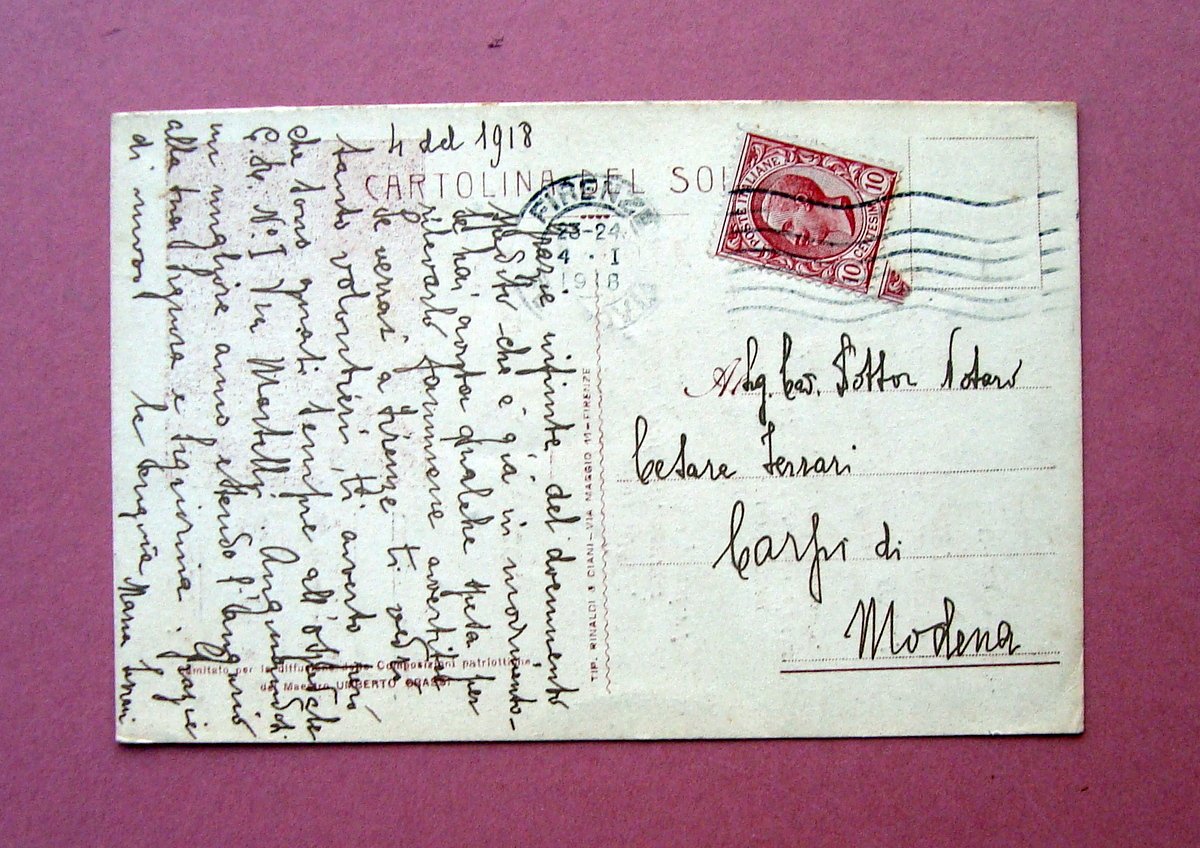 4 del 1918
CARTOLINA DEL SOL
FIRENZE
23-24
4 · I
1918
POSTE ITALIANE
10
CENTESIMI
10
Grazie infinite del documento
che è già in movimento
Se hai avuto qualche spesa per
rilevarlo fammene avvertito
Se verrai a Firenze ti vedrò
tanto volontieri, ti avverto però
che sono quasi sempre all'ospedale
N° I Via Martelli. Augurandoti
un migliore anno estendo l'augurio
alla tua Signora e Signorina. Grazie
di nuovo la cugina Maria
Comitato per la diffusione delle Composizioni patriottiche
del Maestro UMBERTO GRASSI
TIP. RINALDI & CIANI - VIA MAGGIO 11 - FIRENZE
Al Sig. Cav. Dottor Notaro
Cesare Ferrari
Carpi di
Modena